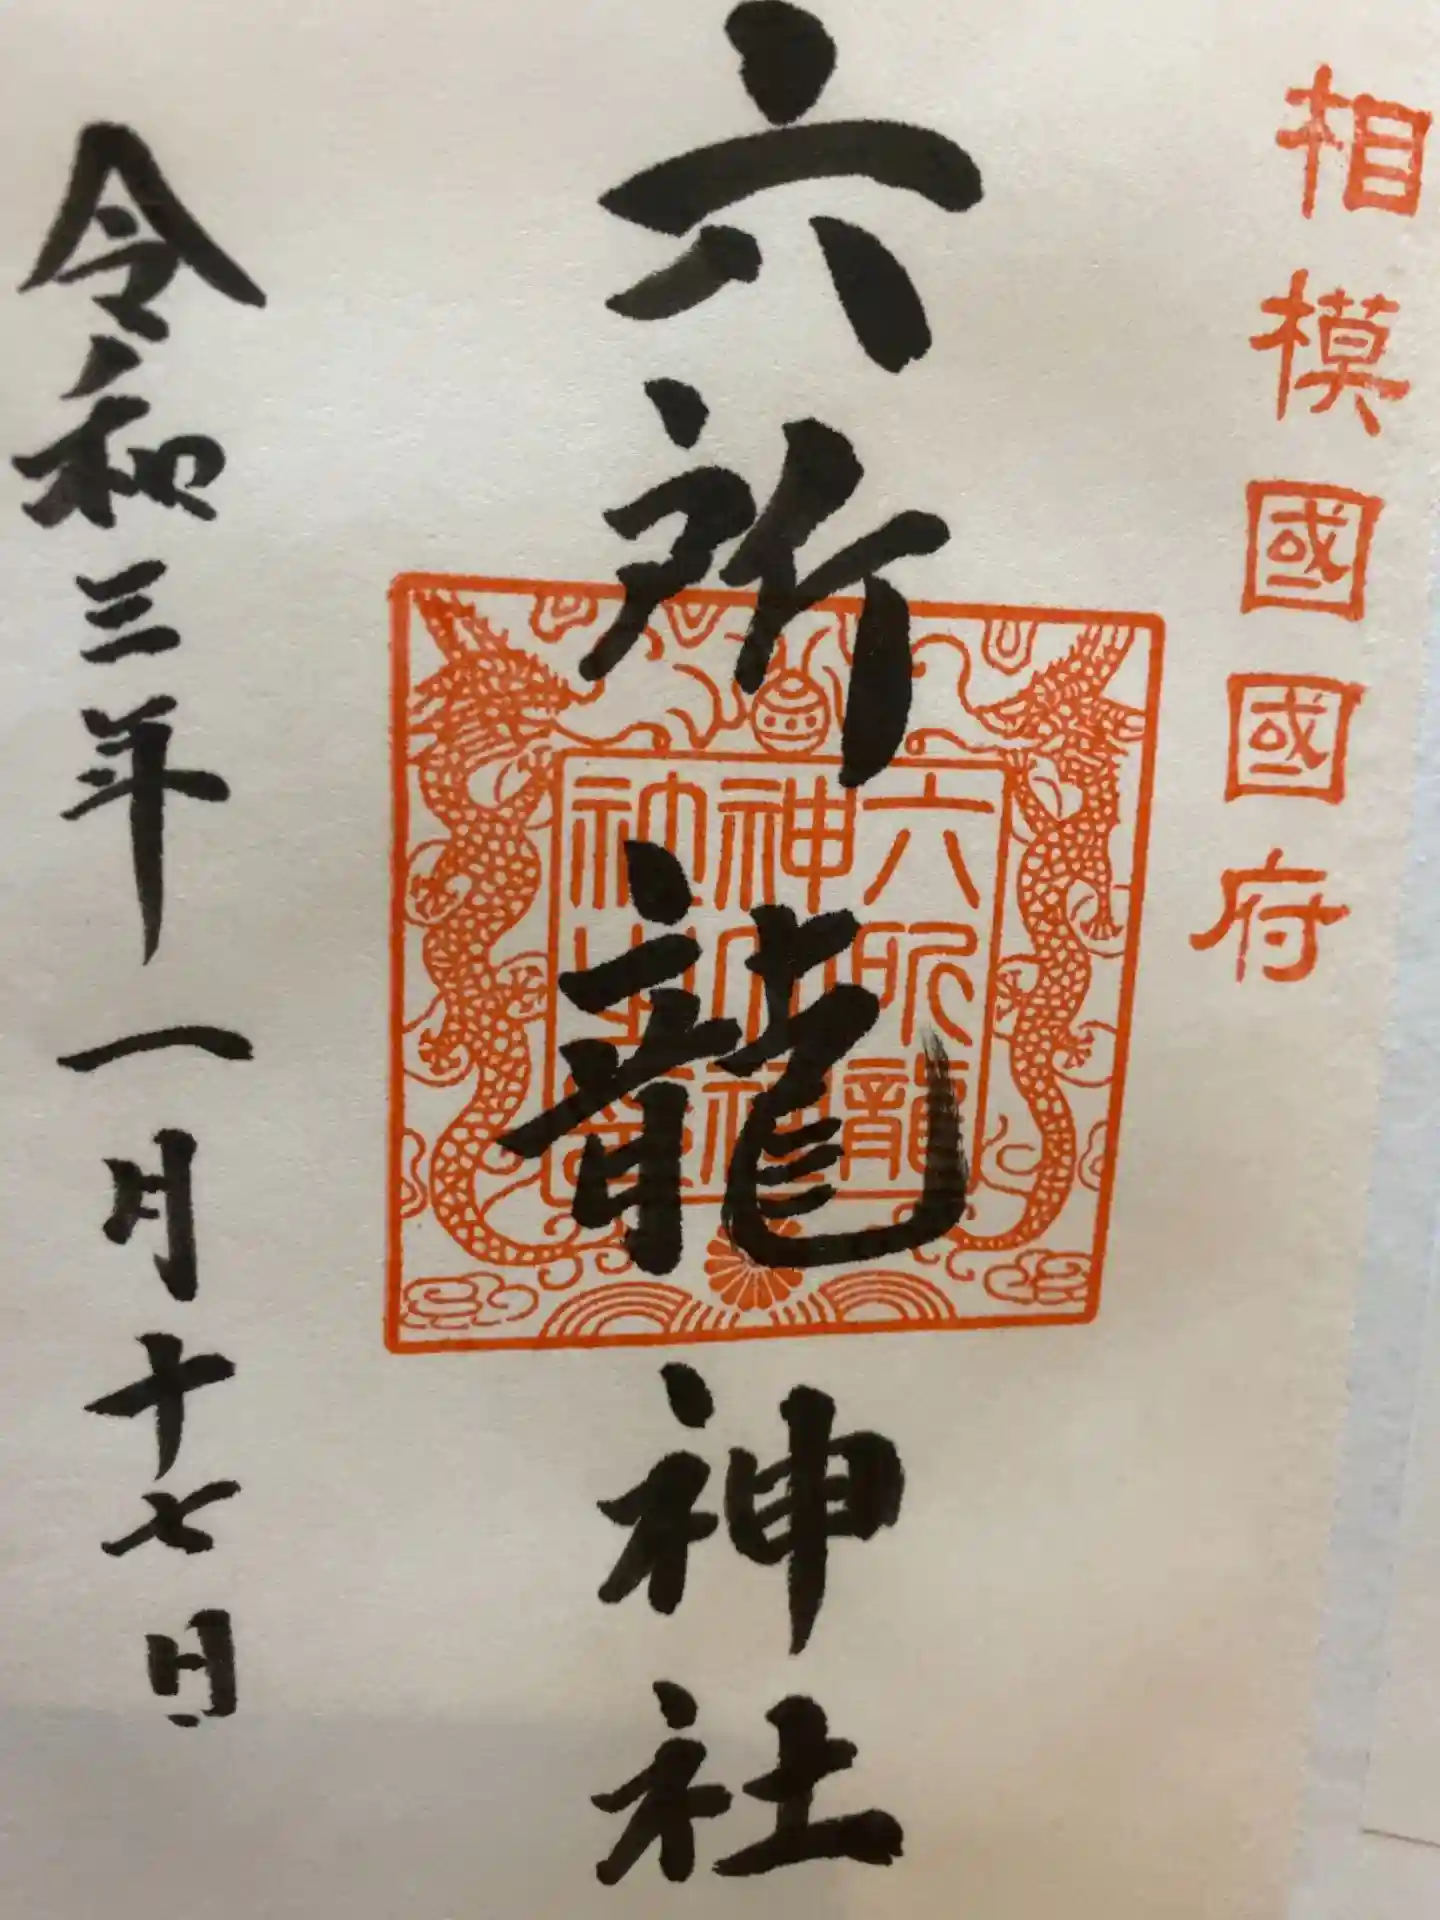 相模國國府
六所龍神社
六所龍
神
令和三年一月十七日